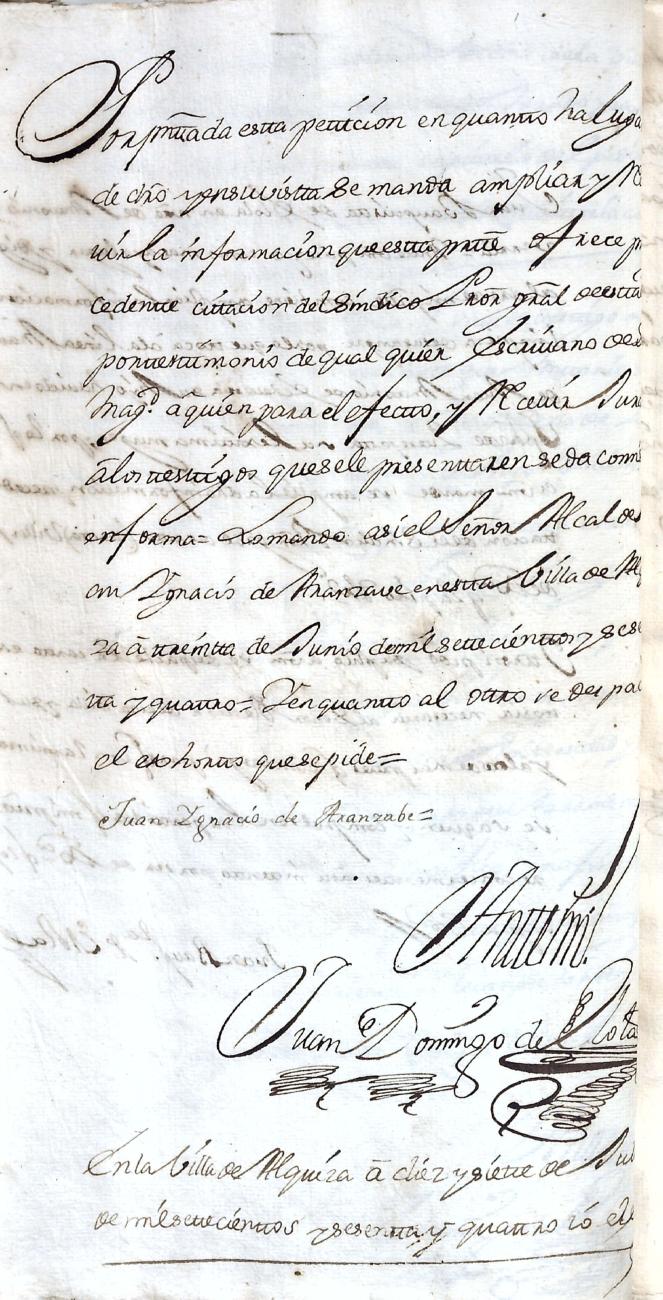 Por pntada estta petticion en quanto ha luga
de dro y en su vistta se manda ampliar y Re
uir la informacion que estta partte ofrece pr
cedente cittacion del Sindico Pror gral de estta
por testtimonio de qual quier Escriuano de su
Magd. a quien para el efectto, y Receuir Jura
a los testtigos que se le presenttaren se da comi
en forma = Lo mando asi el Señor Alcalde
an Ygnacio de Aranzaue en estta Villa de Al
za a treintta de Junio de mil settecienttos y sese
tta y quattro = Y en quantto al ottro se despa
el exhortto que se pide =
Juan Ygnacio de Aranzabe =
Antte mi
Juan Domingo de
En la Villa de Alquiza a diez y siette de Jul
de mil settecienttos y sesentta, y quattro io el